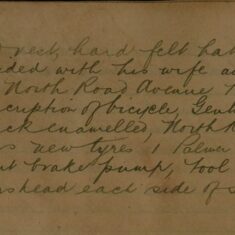 vest, hard felt hat
ided with his wife an
North Road Avenue
cription of bicycle, Gent
ck enamelled, North R
s new tyres 1 Palmer
nt brake pump, tool
rshead each side of s